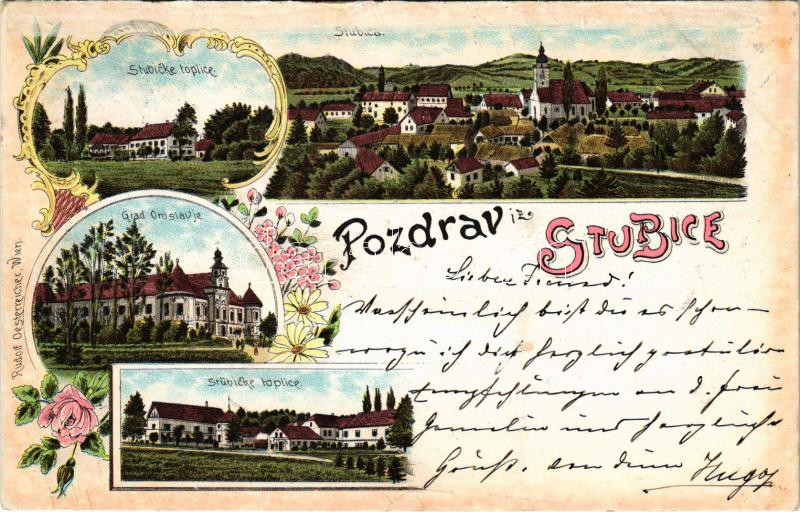 Stubičke toplice.
Stubica.
Grad Oroslavje
Pozdrav iz STUBICE
Rudolf Oesterreicher, Wien.
Stübičke toplice.
Lieber Freund!
Wahrscheinlich bist du es schon
wozu ich dir herzlich gratuliere
Empfehlungen an d. Frau
Gemalin und herzliche
Grüße von deinem Hugo